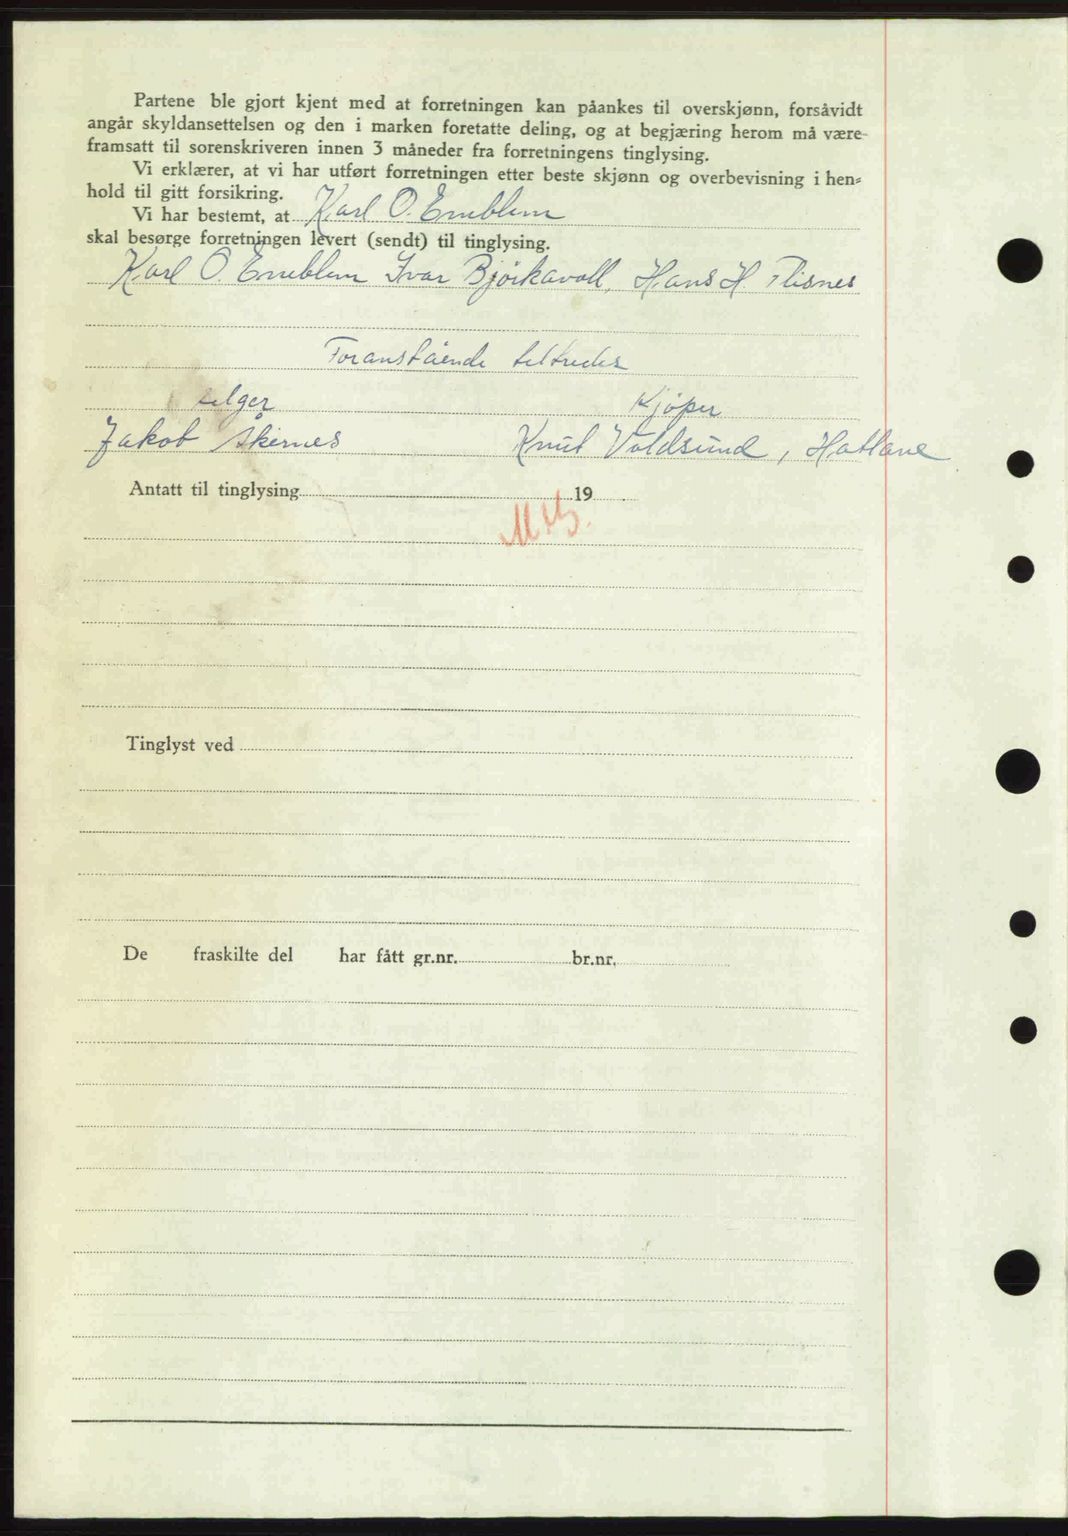 Partene ble gjort kjent med at forretningen kan påankes til overskjønn, forsåvidt
angår skyldansettelsen og den i marken foretatte deling, og at begjæring herom må være
framsatt til sorenskriveren innen 3 måneder fra forretningens tinglysing.
Vi erklærer, at vi har utført forretningen etter beste skjønn og overbevisning i hen=
hold til gitt forsikring.
Vi har bestemt, at Karl O. Emblem
skal besørge forretningen levert (sendt) til tinglysing.
Karl O. Emblem Ivar Bjørkavoll, Hans H. Flisnes
Foranstående tiltredes
selger Kjøper
Jakob Åkernes Knut Voldsund, Hatlane
Antatt til tinglysing 19
Tinglyst ved
De fraskilte del har fått gr.nr. br.nr.